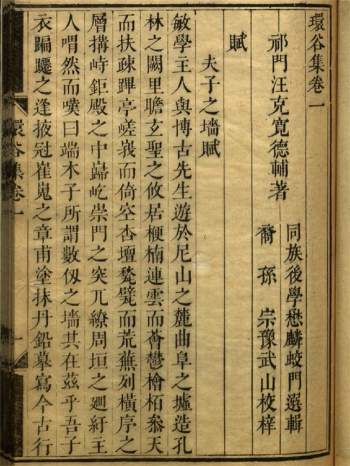 環谷集卷一
祁門汪克寬德輔著
同族後學懋麟蛟門選輯
裔孫 宗豫武山校梓
賦
夫子之墻賦
敏學主人與博古先生遊於尼山之麓曲阜之墟造孔
林之闕里瞻玄聖之攸居楩楠連雲而薈鬱檜栢叅天
而扶疎蹕亭嵯峩而倚空杏壇甃甓而荒蕪列橫序之
層搆峙鉅殿之中巋屹崇門之突兀繚周垣之迴紆主
人喟然而嘆曰端木子所謂數仭之墻其在茲乎吾子
衣蹁躚之逢掖冠崔嵬之章甫塗抹丹鉛摹寫今古行
環谷集卷一